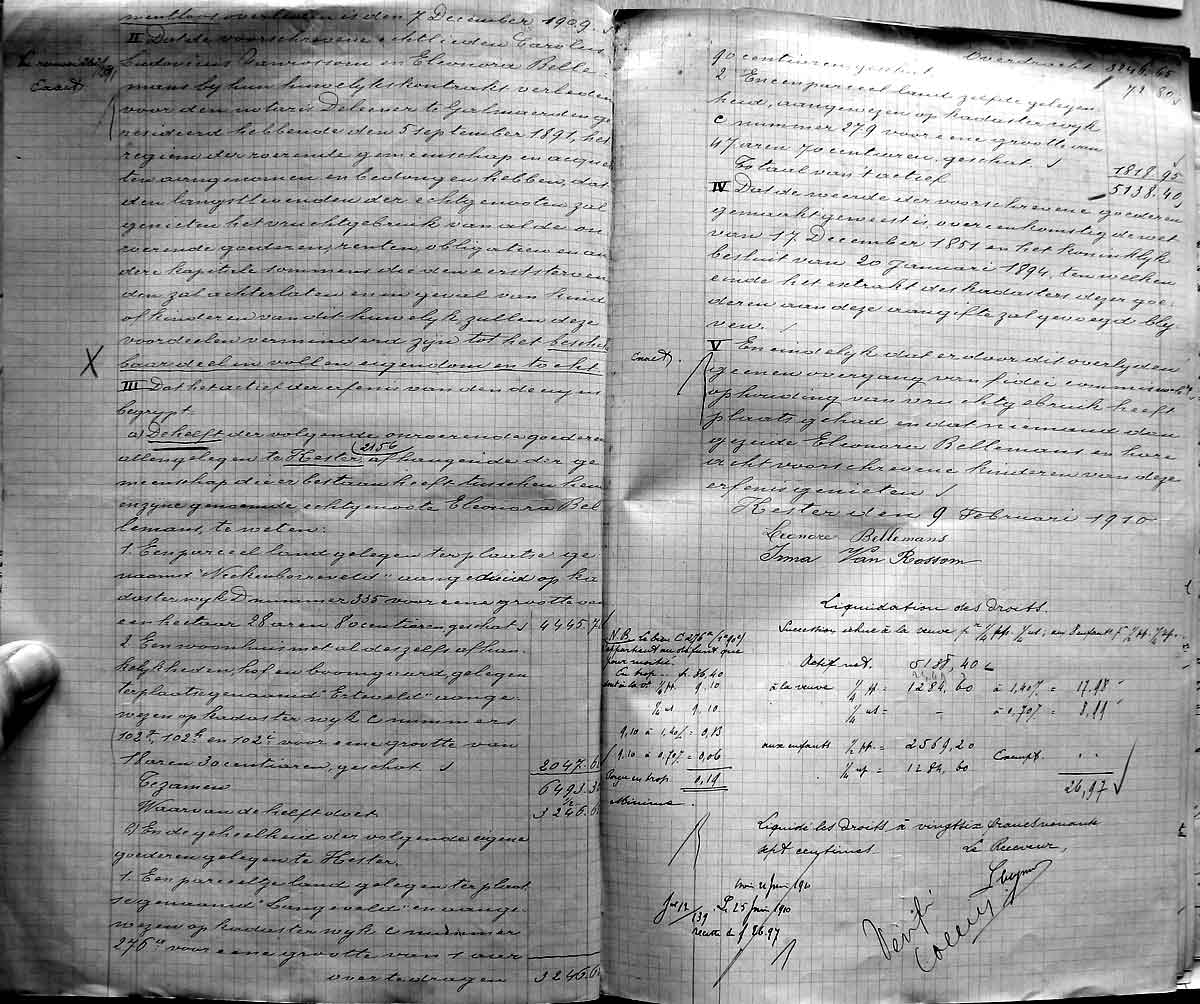 overleden is den 7 December 1909.
II Dat de voorschrevene echtlieden Carolus
Ludovicus Vanrossom en Eleonora Belle-
mans bij hun huwelijkskontrakt verleden
voor den notaris Deleener te Gothmaerden ge
resideerd hebbende den 5 september 1891, het
regiem der roerende gemeenschap en acque
ten aangenomen en bedongen hebben, dat
den langstlevenden der echtgenoten zal
genieten het vruchtgebruik van al de on
roerende goederen, renten, obligatien en an
dere kapitale sommen die den eerststerven
den zal achterlaten en in geval van kind
of kinderen van dit huwelyk zullen deze
voordeelen verminderd zijn tot het beschik
baar deel in vollen eigendom en tocht
X
III Dat het actief der erfenis van den decuyus
begrypt
a) De helft der volgende onroerende goederen
allen gelegen te Hester, afhangende der ge
2156
meenschap die er bestaan heeft tusschen hem
en zyne genoemde echtgenote Eleonora Bel
lemans, te weten:
1. Een parceel land gelegen ter plaatse ge
naamd "Neckenborreveld" aangeduid op ka
daster wyk D nummer 335 voor eene grootte van
een hectaar 28 aren 80 centieren geschat 4445.7
2. Een woonhuis met al deszelfs afhan
kelykheden, hof en boomgaard, gelegen
ter plaats genaamd "Erteveld" aange
wezen op kadaster wyk C nummers
102, 102 en 102 voor eene grootte van
18 aren 30 centiaren, geschat 2047.6
Tezamen 6493.3
Waarvan de helft doet 3246.6
b) En de geheelheid der volgende eigene
goederen gelegen te Hester.
1. Een parceeltje land gelegen ter plaat
se genaamd "Langeveld" en aange
wezen op kadaster wyk C nummer
276 voor eene grootte van 1 aar
over te dragen 3246.6
Exact
Overdracht 3246.65
90 centiaren geschat 72 80
2 Een een parceel land zelfde gelegen
heid, aangewezen op kadaster wyk
C nummer 279 voor eene grootte van
47 aren 70 centiaren, geschat. 1818.95
Totaal van 't actief 5138.40
IV Dat de weerde der voorschrevene goederen
gemaakt geweest is, overeenkomstig de wet
van 17 December 1851 en het koninklyk
besluit van 20 Januari 1894, ten welken
einde het extrakt des kadasters dezer goe
deren aan deze aangifte zal gevoegd bly
ven.
Exact.
V En eindelyk dat er door dit overlyden
geenen overgang van fidei commis noch
ophouding van vruchtgebruik heeft
plaats gehad en dat niemand dan
gezeide Eleonora Bellemans en hare
acht voorschrevene kinderen van deze
erfenis genieten
Hester den 9 Februari 1910
Leonore Bellemans
Irma Van Rossom
Liquidation des droits.
Succession échue à la veuve pr 1/4 pp. 1/4 us; aux 8 enfants
Actif net. 5138,40
à la veuve 1/4 pp = 1284,60 à 1,40% = 17,98
1/4 us = - à 0,70% = 8,99
aux enfants 1/2 pp = 2569,20 Exempt.
1/4 np = 1284,60
26,97
N.B. Le bien C 276
appartient au défunt que
pour moitié.
En trop. f. 36,40
soit à la ve 1/4 pp. 9.10
1/4 us 9.10
9,10 à 1,40% = 0,13
9,10 à 0,70% = 0,06
Perçu en trop 0,19
Minime.
Liquidé les droits à vingt six francs nonante
sept centimes.
Le Receveur,
Le 25 juin 1910
139
recette de f 26.97
Vérifié